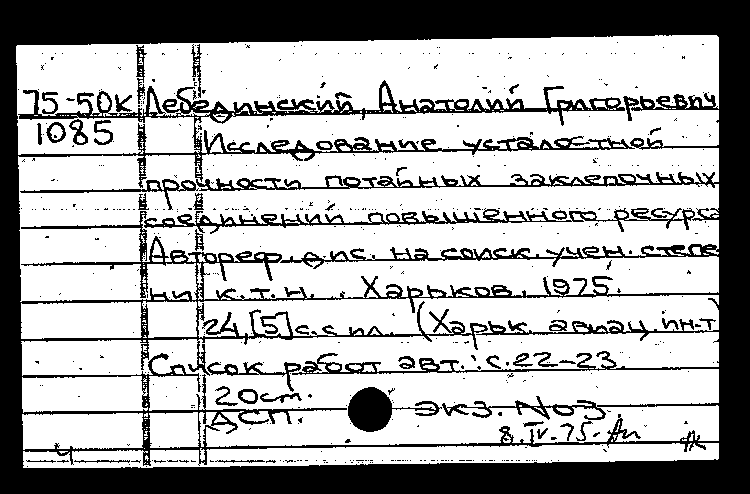 75-50к Лебединский, Анатолий Григорьевич
1085 Исследование усталостной
прочности потайных заклепочных
соединений повышенного ресурса
Автореф. дис. на соиск. учен. степе
ни к.т.н. . Харьков, 1975.
24,[5]с. с ил. (Харьк. авиац. ин-т)
Список работ авт.: с.22-23.
20см.
ДСП. экз. №3.
8.IV.75.
ч